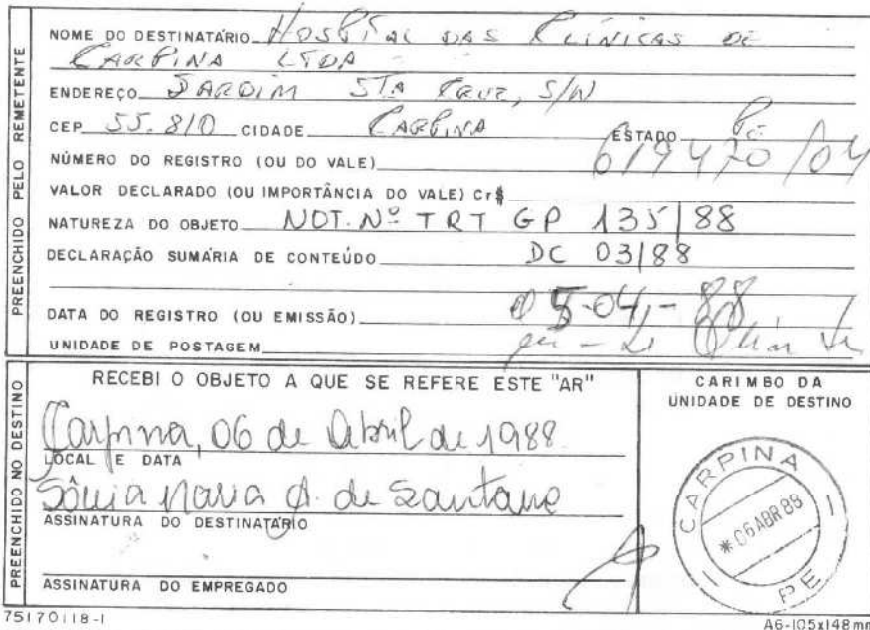 PREENCHIDO PELO REMETENTE
NOME DO DESTINATÁRIO HOSPITAL DAS CLÍNICAS DE
CARPINA LTDA
ENDEREÇO JARDIM STA CRUZ, S/N
CEP 55.810 CIDADE CARPINA ESTADO Pe
NÚMERO DO REGISTRO (OU DO VALE) 619470/04
VALOR DECLARADO (OU IMPORTÂNCIA DO VALE) Cr$
NATUREZA DO OBJETO NOT. Nº TRT GP 135/88
DECLARAÇÃO SUMÁRIA DE CONTEÚDO DC 03/88
DATA DO REGISTRO (OU EMISSÃO) 05-04-88
UNIDADE DE POSTAGEM
PREENCHIDO NO DESTINO
RECEBI O OBJETO A QUE SE REFERE ESTE "AR"
Carpina, 06 de Abril de 1988.
LOCAL E DATA
Sônia Maria A. de Santana
ASSINATURA DO DESTINATÁRIO
ASSINATURA DO EMPREGADO
CARIMBO DA
UNIDADE DE DESTINO
CARPINA
* 06 ABR 88
PE
75170118-1
A6-105x148mm